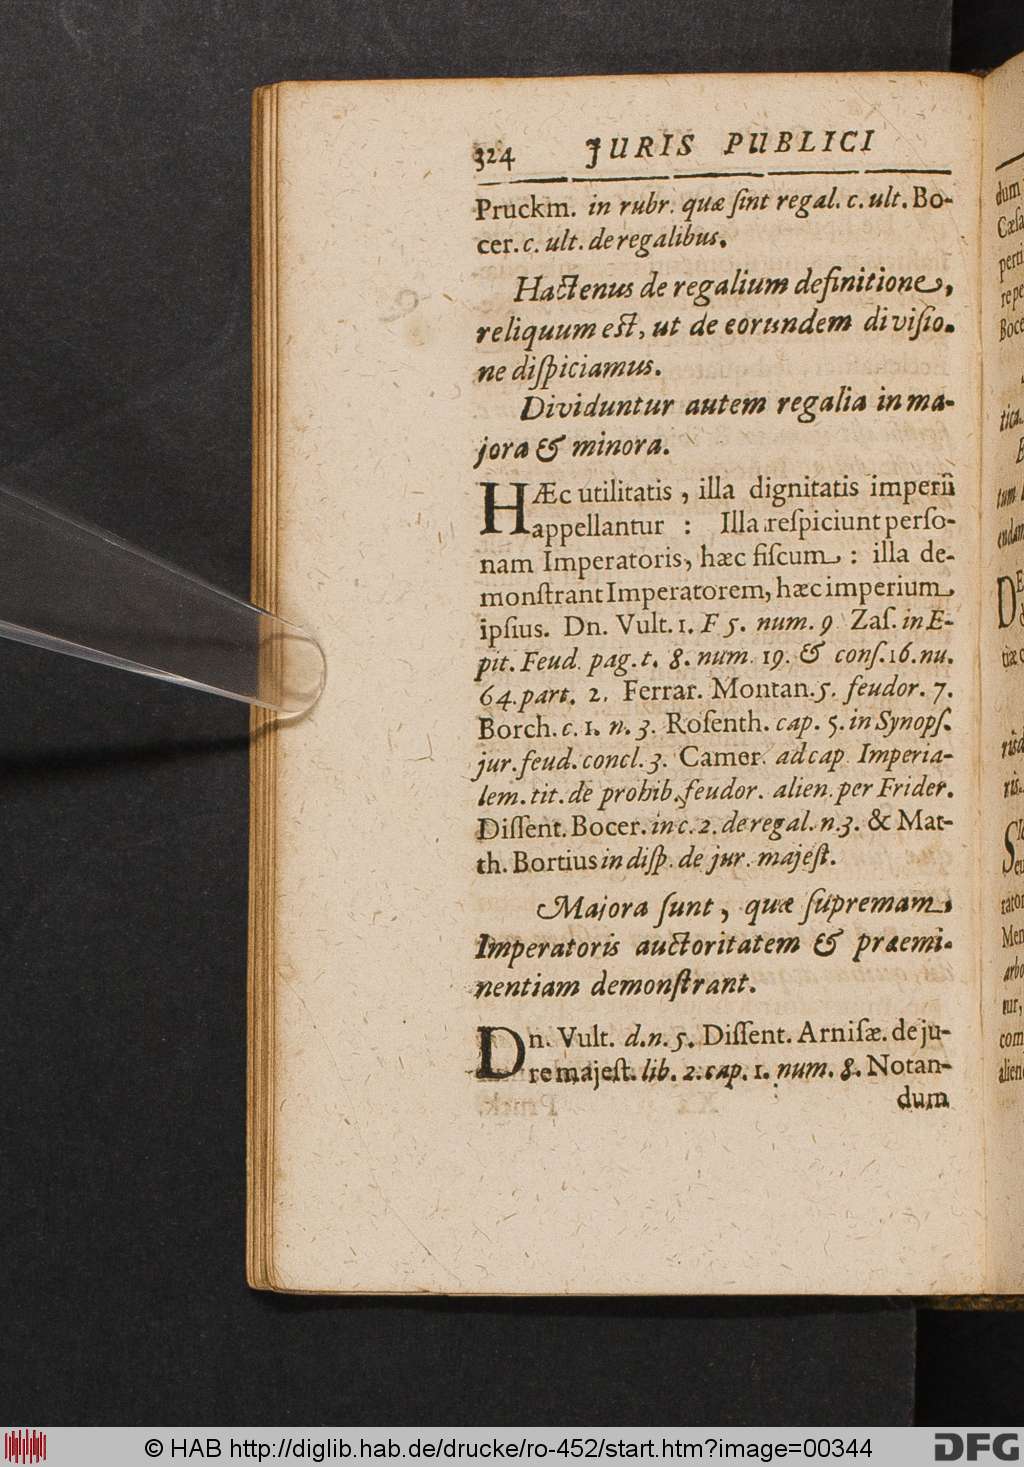 324 JURIS PUBLICI
Pruckm. in rubr. quæ ſint regal. c. ult. Bo-
cer. c. ult. de regalibus.
Hactenus de regalium definitione,
reliquum eſt, ut de eorundem diviſio-
ne diſpiciamus.
Dividuntur autem regalia in ma-
jora & minora.
HÆc utilitatis, illa dignitatis imperii
appellantur : Illa reſpiciunt perſo-
nam Imperatoris, hæc fiſcum : illa de-
monſtrant Imperatorem, hæc imperium
ipſius. Dn. Vult. 1. F 5. num. 9 Zaſ. in E-
pit. Feud. pag. t. 8. num. 19. & conſ. 16. nu.
64. part. 2. Ferrar. Montan. 5. feudor. 7.
Borch. c. 1. n. 3. Roſenth. cap. 5. in Synopſ.
jur. feud. concl. 3. Camer. ad cap. Imperia-
lem. tit. de prohib. feudor. alien. per Frider.
Diſſent. Bocer. in c. 2. de regal. n. 3. & Mat-
th. Bortius in diſp. de jur. majeſt.
Majora ſunt, quæ ſupremam
Imperatoris auctoritatem & præemi-
nentiam demonſtrant.
Dn. Vult. d. n. 5. Diſſent. Arniſæ. de ju-
re majeſt. lib. 2. cap. 1. num. 8. Notan-
dum
dum
Cæſa
perti
re pe
Boce
tica.
tum
endam
DE
tiæ c
ris.
SI
eu
rator
Men
arbo
tur,
com
alien
© HAB http://diglib.hab.de/drucke/ro-452/start.htm?image=00344
DFG